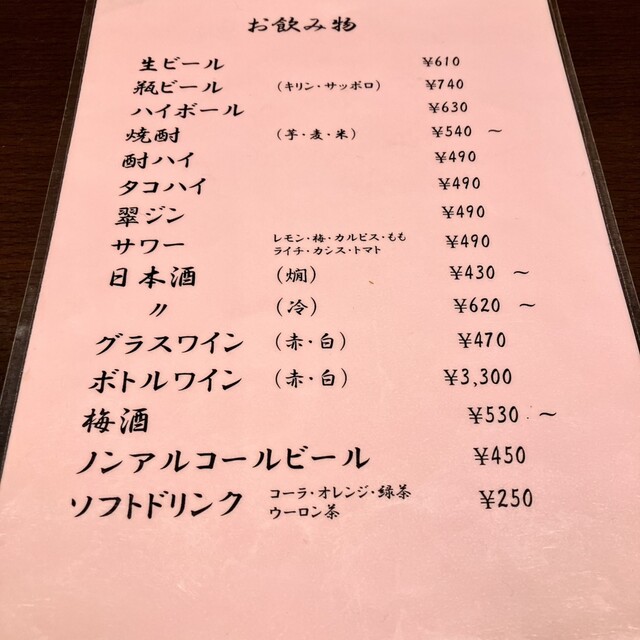 お飲み物
生ビール ¥610
瓶ビール (キリン・サッポロ) ¥740
ハイボール ¥630
焼酎 (芋・麦・米) ¥540 ～
酎ハイ ¥490
タコハイ ¥490
翠ジン ¥490
サワー レモン・梅・カルピス・もも ¥490
ライチ・カシス・トマト
日本酒 (燗) ¥430 ～
〃 (冷) ¥620 ～
グラスワイン (赤・白) ¥470
ボトルワイン (赤・白) ¥3,300
梅酒 ¥530 ～
ノンアルコールビール ¥450
ソフトドリンク コーラ・オレンジ・緑茶 ¥250
ウーロン茶